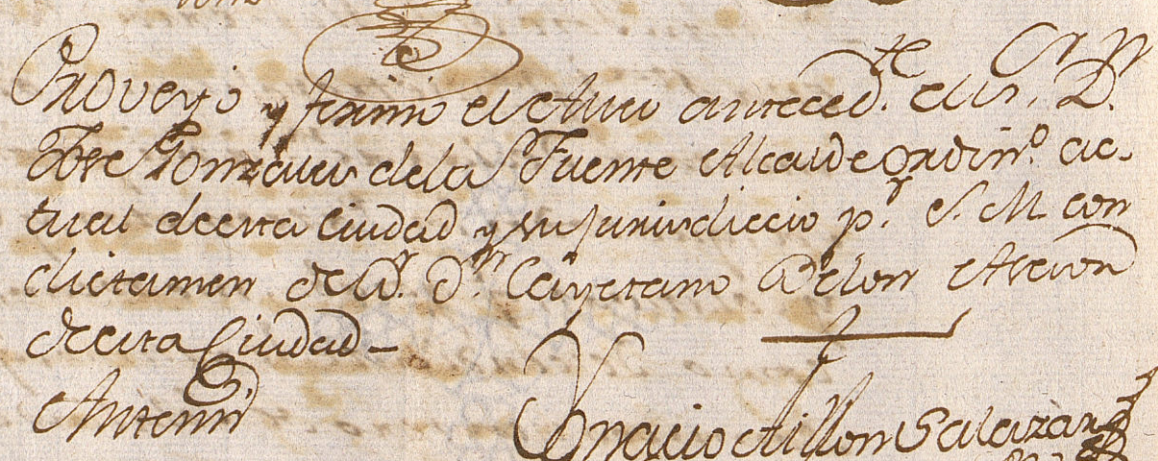 Proveyo y firmo el Auto anteced.te el Sr. Dn.
Jose Gonzales dela Fuente Alcalde Ordin.o ac-
tual deesta Ciudad y su Jurisdiccio p.r S. M. con
dictamen del D.r D.n Cayetano Belon Asesor
deesta Ciudad_
Antemi
Ygnacio Aillon Salazar